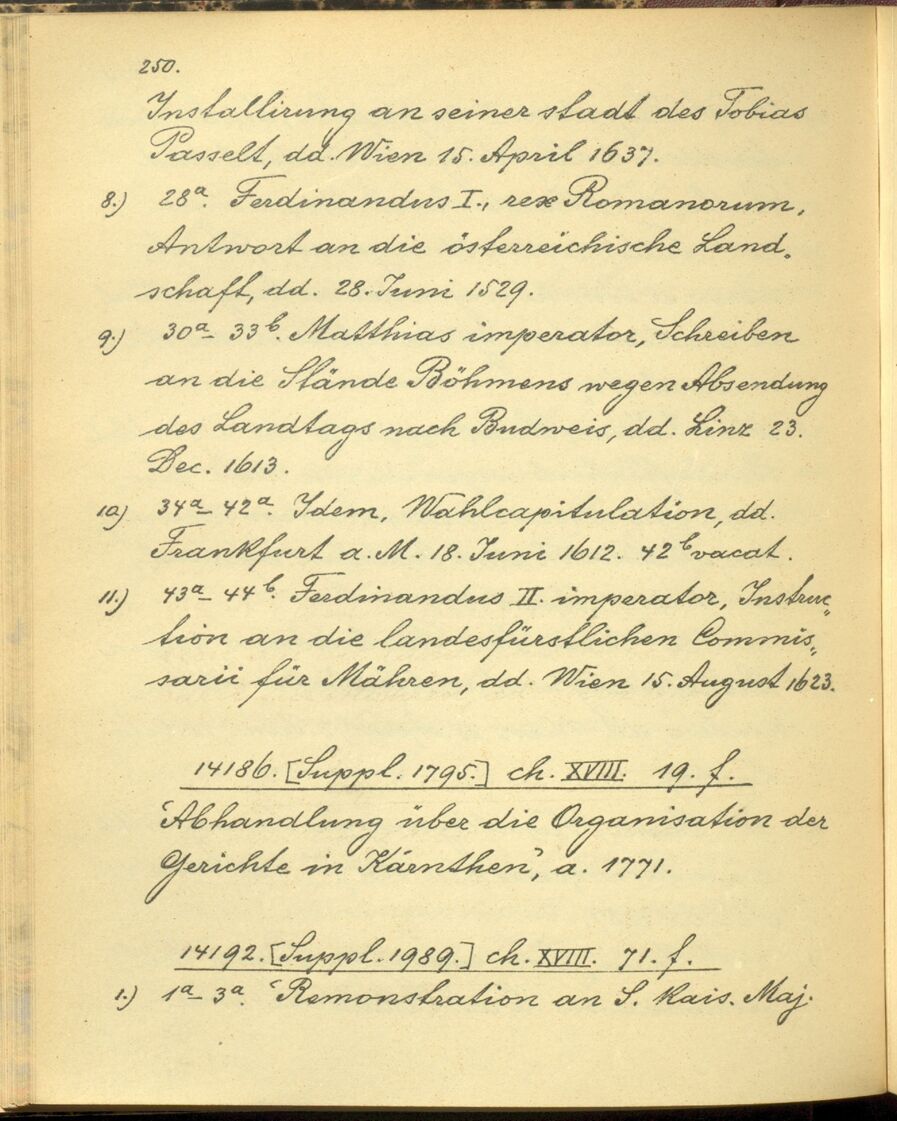 250.
Installirung an seiner stadt des Tobias
Passelt, dd. Wien 15. April 1637.
8.) 28a. Ferdinandus I., rex Romanorum,
Antwort an die österreichische Land„
schaft, dd. 28. Juni 1529.
9.) 30a– 33b. Matthias imperator, Schreiben
an die Stände Böhmens wegen Absendung
des Landtags nach Budweis, dd. Linz 23.
Dec. 1613.
10) 34a– 42a. Idem, Wahlcapitulation, dd.
Frankfurt a. M. 18. Juni 1612. 42b vacat.
11.) 43a– 44b. Ferdinandus II. imperator, Instruc„
tion an die landesfürstlichen Commis„
sarii für Mähren, dd. Wien 15. August 1623.
14186. [Suppl. 1795.] ch. XVIII. 19. f.
‘Abhandlung über die Organisation der
Gerichte in Kärnthen’, a. 1771.
14192. [Suppl. 1989.] ch. XVIII. 71. f.
1.) 1a– 3a. ‘Remonstration an S. Kais. Maj.